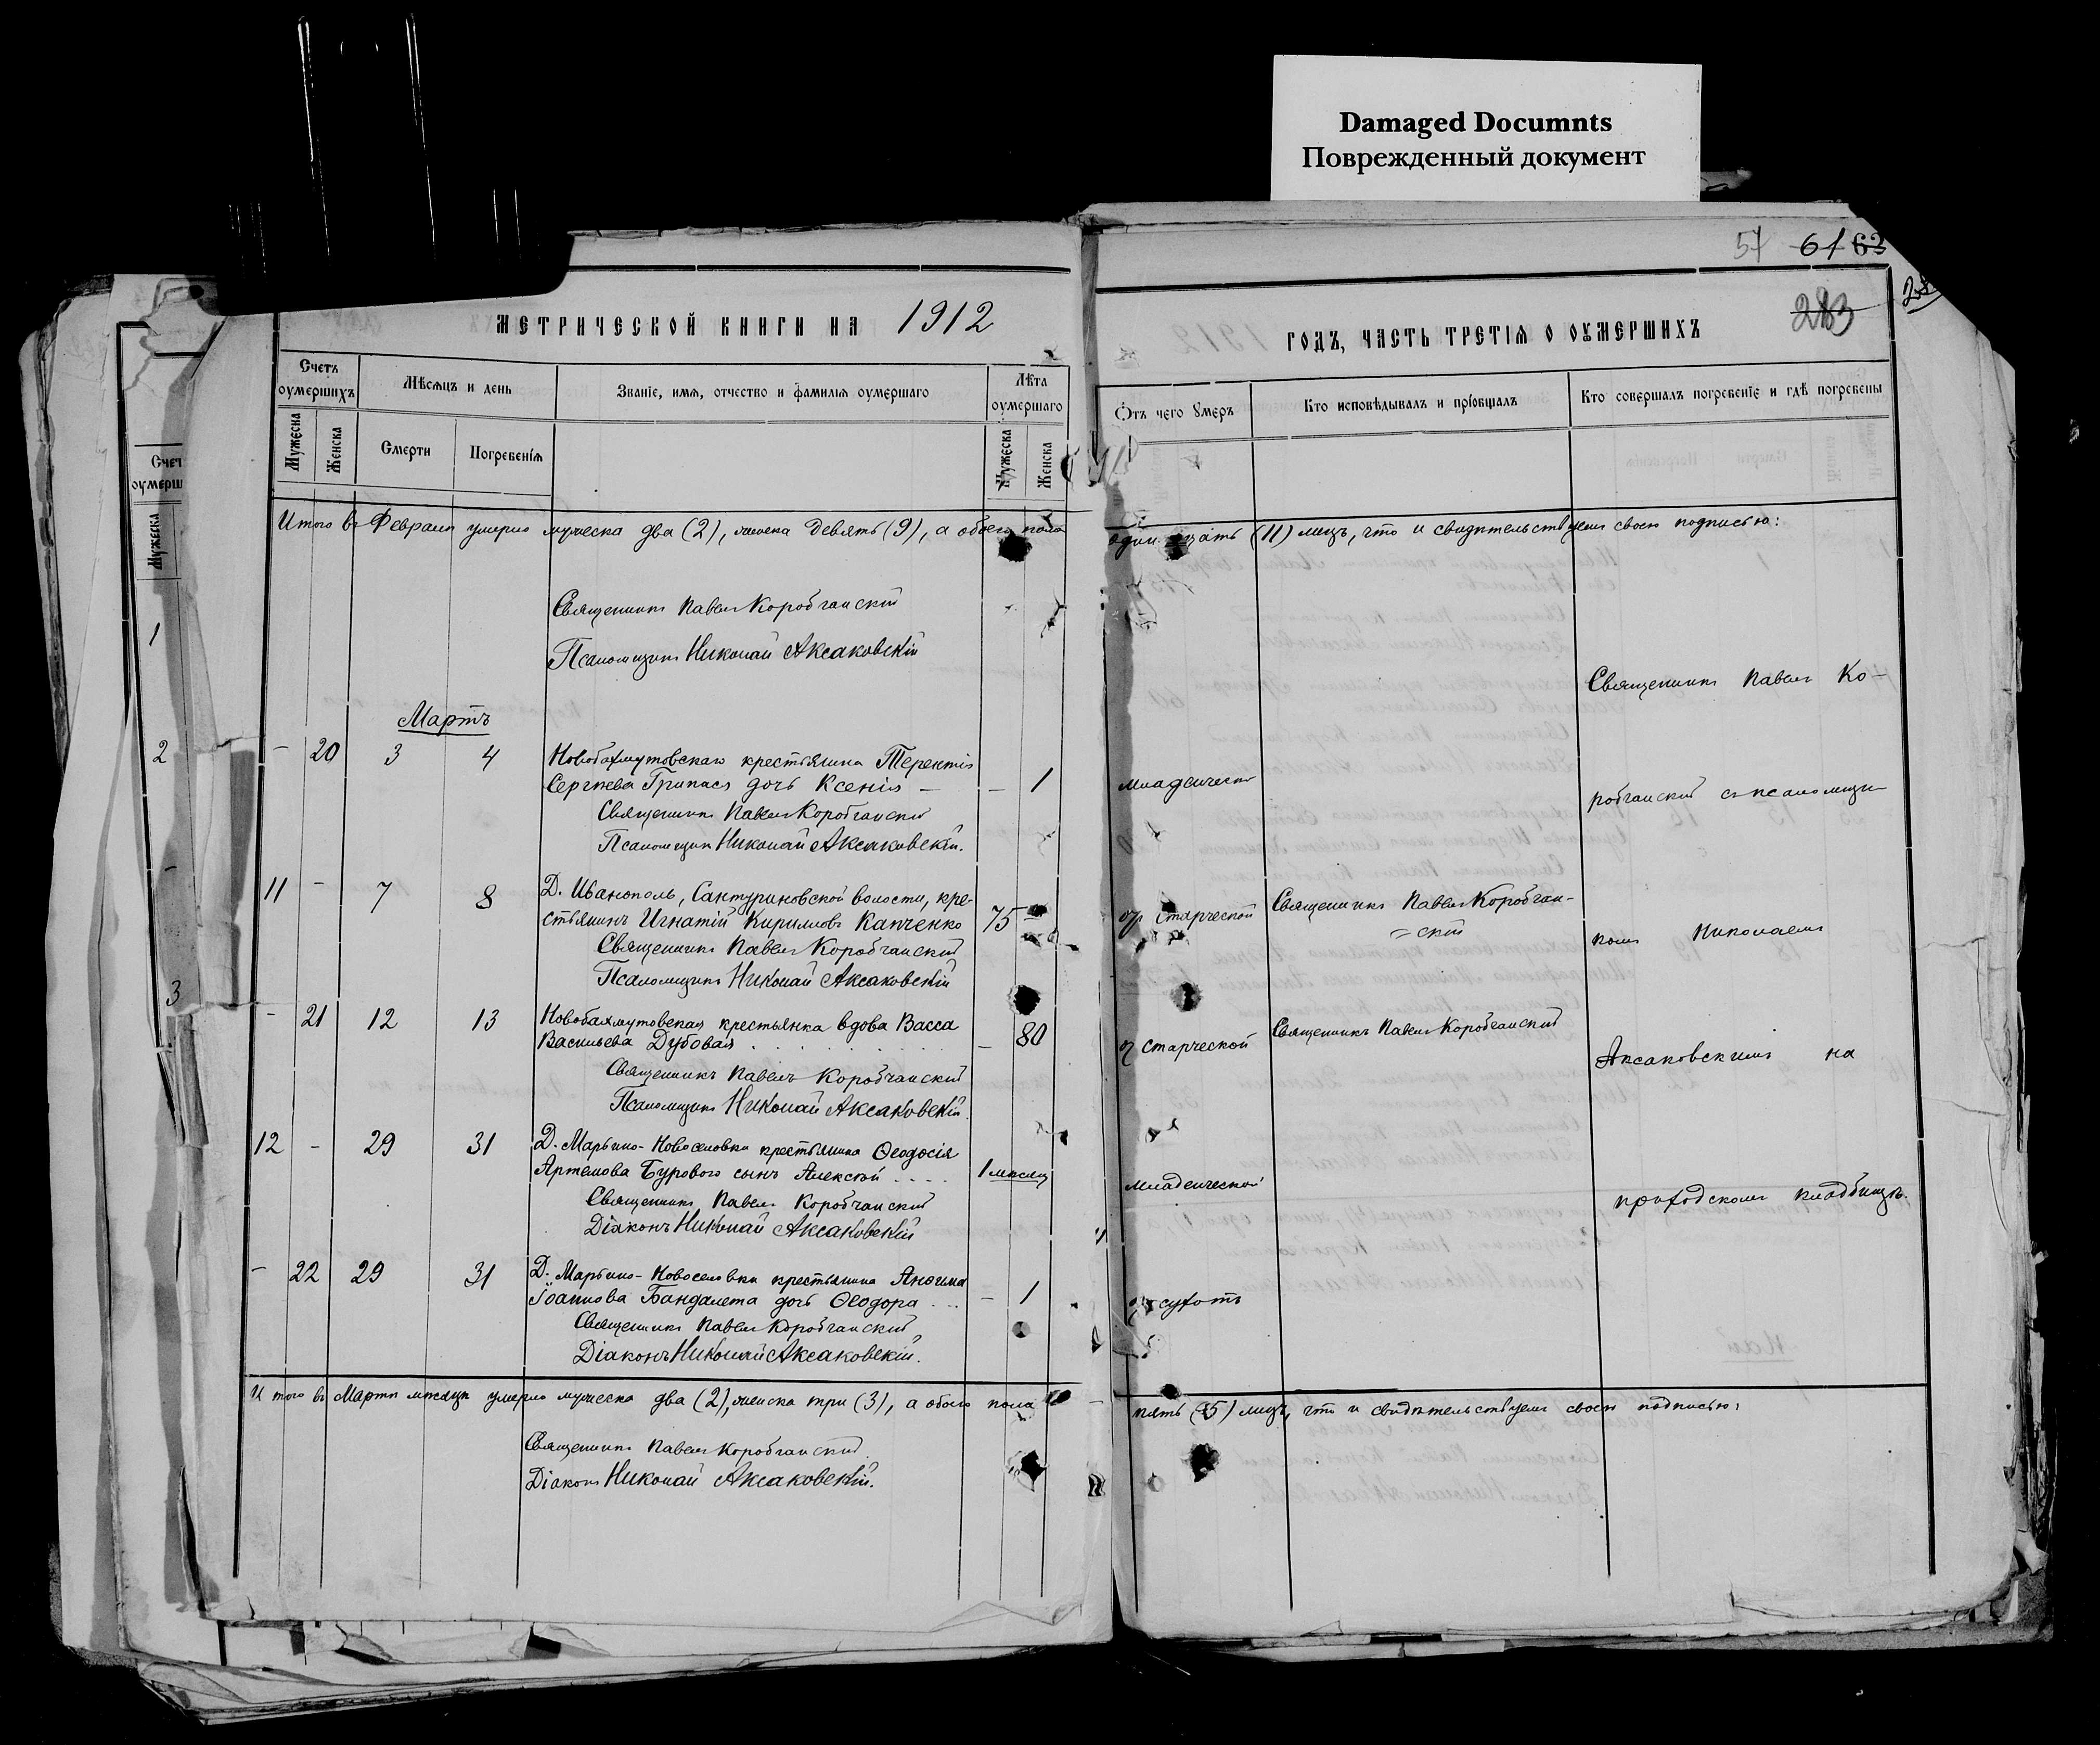 Damaged Documnts
Поврежденный документ
51 61 63
283
МЕТРИЧЕСКОЙ КНИГИ НА 1912
ГОДЪ, ЧАСТЬ ТРЕТІѦ О ОУМЕРШИХЪ
Счетъ оумершихъ
Мѣсяцъ и день
Званіе, имя, отчество и фамилія оумершаго
Лѣта оумершаго
Ѿтъ чего умеръ
Кто исповѣдывалъ и пріобщалъ
Кто совершалъ погребеніе и гдѣ погребены
Мужеска
Женска
Смерти
Погребенія
Мужеска
Женска
Итого въ Февралѣ умерло мужеска два (2), женска девять (9), а обоего пола
(11) лицъ, что и свидѣтельствуемъ своею подписью:
Священникъ Павелъ Коробчанскій
Псаломщикъ Николай Аксаковскій
Священникъ Павелъ Ко-
Мартъ
- 20 3 4 Новобахмутовскаго крестьянина Терентія
Сергѣева Грипася дочь Ксенія — — 1 младенческ
Священникъ Павелъ Коробчанскій
Псаломщикъ Николай Аксаковскій.
робчанскій съ псаломщи-
11 - 7 8 Д. Иванополь, Сантуриновской волости, кре-
стьянинъ Игнатій Кириловъ Капченко 75 - старческой
Священникъ Павелъ Коробчан-
=скій
Священникъ Павелъ Коробчанскій
Псаломщикъ Николай Аксаковскій
комъ Николаемъ
- 21 12 13 Новобахмутовская крестьянка вдова Васса
Васильева Дубовая — 80 старческой
Священникъ Павелъ Коробчанскій
Священникъ Павелъ Коробчанскій
Псаломщикъ Николай Аксаковскій.
Аксаковскимъ на
12 - 29 31 Д. Марьино-Новоселовки крестьянина Ѳеодосія
Артемова Бурового сынъ Алексѣй .... 1 мѣсяц младенческой
Священникъ Павелъ Коробчанскій
Діаконъ Николай Аксаковскій
приходскомъ кладбищѣ.
- 22 29 31 Д. Марьино-Новоселовки крестьянина Анѳима
Іоаннова Бандалета дочь Ѳеодора ... — 1 сухотъ
Священникъ Павелъ Коробчанскій
Діаконъ Николай Аксаковскій.
Итого въ Мартѣ мѣсяцѣ умерло мужеска два (2), женска три (3), а обоего пола
пять (5) лицъ, что и свидѣтельствуемъ своею подписью:
Священникъ Павелъ Коробчанскій
Діаконъ Николай Аксаковскій.
Счет
оумерш
Мужеска
1
2
3